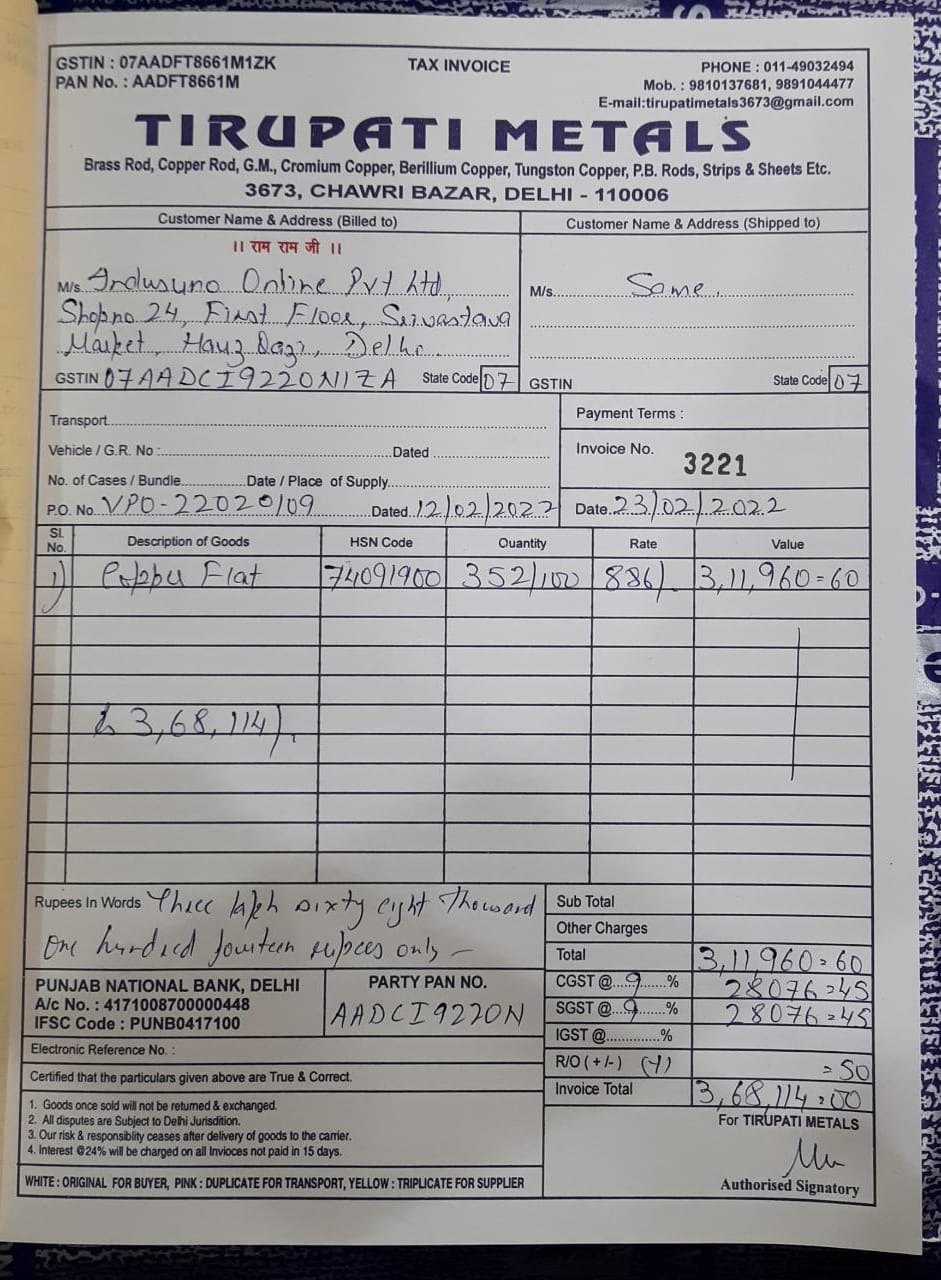 GSTIN : 07AADFT8661M1ZK
TAX INVOICE
PHONE : 011-49032494
PAN No. : AADFT8661M
Mob. : 9810137681, 9891044477
E-mail:tirupatimetals3673@gmail.com
TIRUPATI METALS
Brass Rod, Copper Rod, G.M., Cromium Copper, Berillium Copper, Tungston Copper, P.B. Rods, Strips & Sheets Etc.
3673, CHAWRI BAZAR, DELHI - 110006
Customer Name & Address (Billed to)
।। राम राम जी ।।
M/s. Indusuno Online Pvt Ltd,
Shop no 24, First Floor, Srivastava
Market, Hauz Qazi, Delhi
GSTIN 07AADCI9220N1ZA State Code 07
Customer Name & Address (Shipped to)
M/s. Same,
GSTIN State Code 07
Transport
Vehicle / G.R. No : Dated
No. of Cases / Bundle Date / Place of Supply
P.O. No. VPO-22020/09 Dated 12/02/2022
Payment Terms :
Invoice No. 3221
Date 23/02/2022
Sl. No. Description of Goods HSN Code Quantity Rate Value
1) Copper Flat 74091900 352/100 886/. 3,11,960=60
3,68,114/.
Rupees In Words Three lakh sixty eight Thousand
One hundred fourteen rupees only –
Sub Total
Other Charges
Total 3,11,960=60
CGST @ 9 % 28076=45
SGST @ 9 % 28076=45
IGST @ %
R/O (+/-) (+) =50
Invoice Total 3,68,114=00
PUNJAB NATIONAL BANK, DELHI
A/c No. : 4171008700000448
IFSC Code : PUNB0417100
PARTY PAN NO.
AADCI9220N
Electronic Reference No. :
Certified that the particulars given above are True & Correct.
1. Goods once sold will not be returned & exchanged.
2. All disputes are Subject to Delhi Jurisdition.
3. Our risk & responsiblity ceases after delivery of goods to the carrier.
4. Interest @24% will be charged on all Invioces not paid in 15 days.
WHITE : ORIGINAL FOR BUYER, PINK : DUPLICATE FOR TRANSPORT, YELLOW : TRIPLICATE FOR SUPPLIER
For TIRUPATI METALS
Authorised Signatory